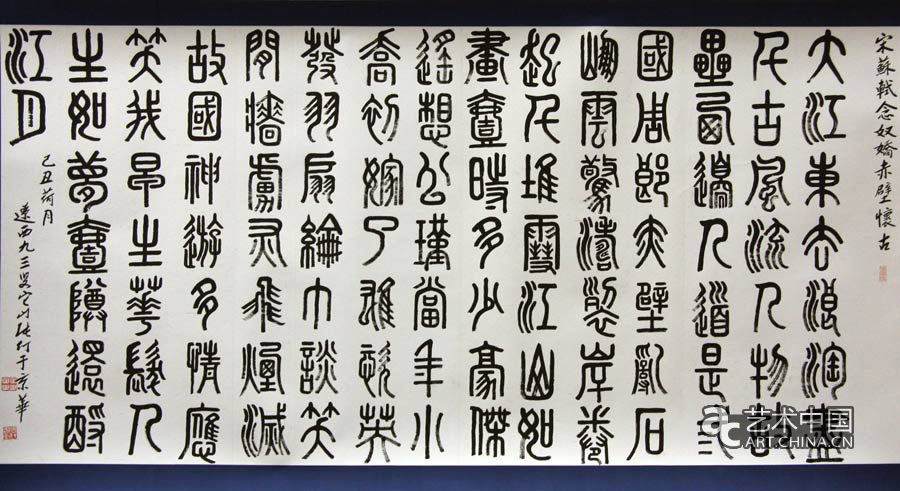 宋蘇軾念奴嬌赤壁懷古
大江東去浪淘盡
千古風流人物故
壘西邊人道是三
國周郎赤壁亂石
崩雲驚濤裂岸卷
起千堆雪江山如
畫壹時多少豪傑
遙想公瑾當年小
喬初嫁了雄姿英
發羽扇綸巾談笑
間檣虜灰飛煙滅
故國神遊多情應
笑我早生華髮人
生如夢壹尊還酹
江月
己丑荷月
遼西九三叟它山張仃于京華
艺术中国
ART.CHINA.CN